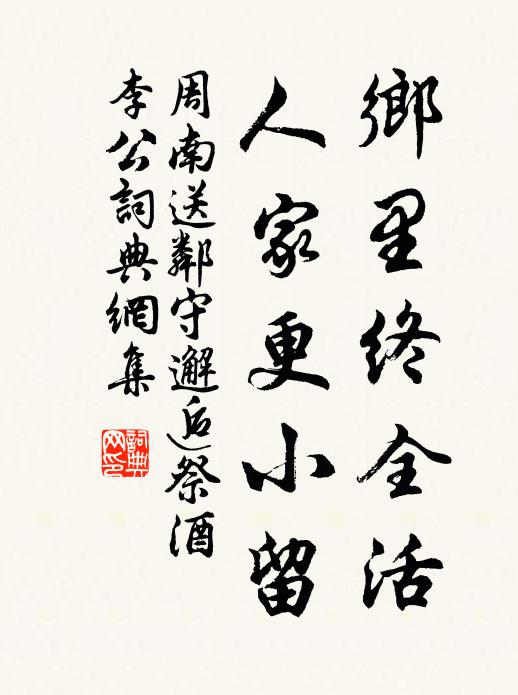 鄉里終全活
人家更小留
周南送鄰守邂逅祭酒
李公詞典網集
詞典
网印